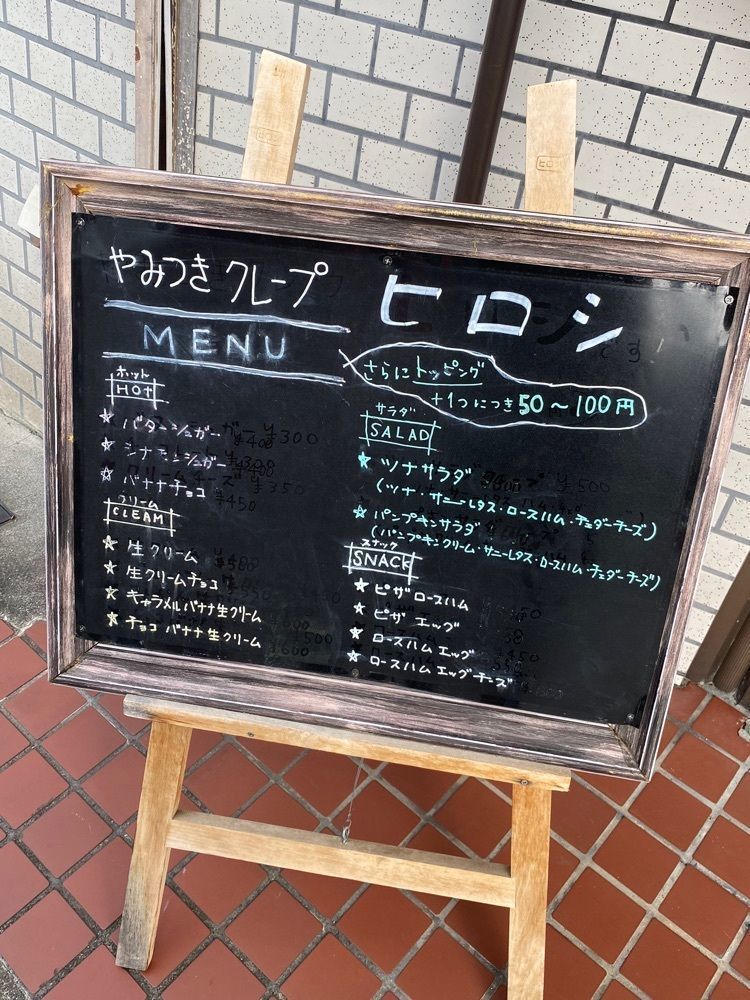 やみつきクレープ ヒロシ
MENU
ホット
HOT
☆ バターシュガー
☆ シナモンシュガー
☆ バナナチョコ
クリーム
CLEAM
☆ 生クリーム
☆ 生クリームチョコ
☆ キャラメルバナナ生クリーム
☆ チョコバナナ生クリーム
さらにトッピング
+1つにつき50〜100円
サラダ
SALAD
☆ ツナサラダ
(ツナ・サニーレタス・ロースハム・チェダーチーズ)
☆ パンプキンサラダ
(パンプキンクリーム・サニーレタス・ロースハム・チェダーチーズ)
スナック
SNACK
☆ ピザロースハム
☆ ピザエッグ
☆ ロースハムエッグ
☆ ロースハムエッグチーズ